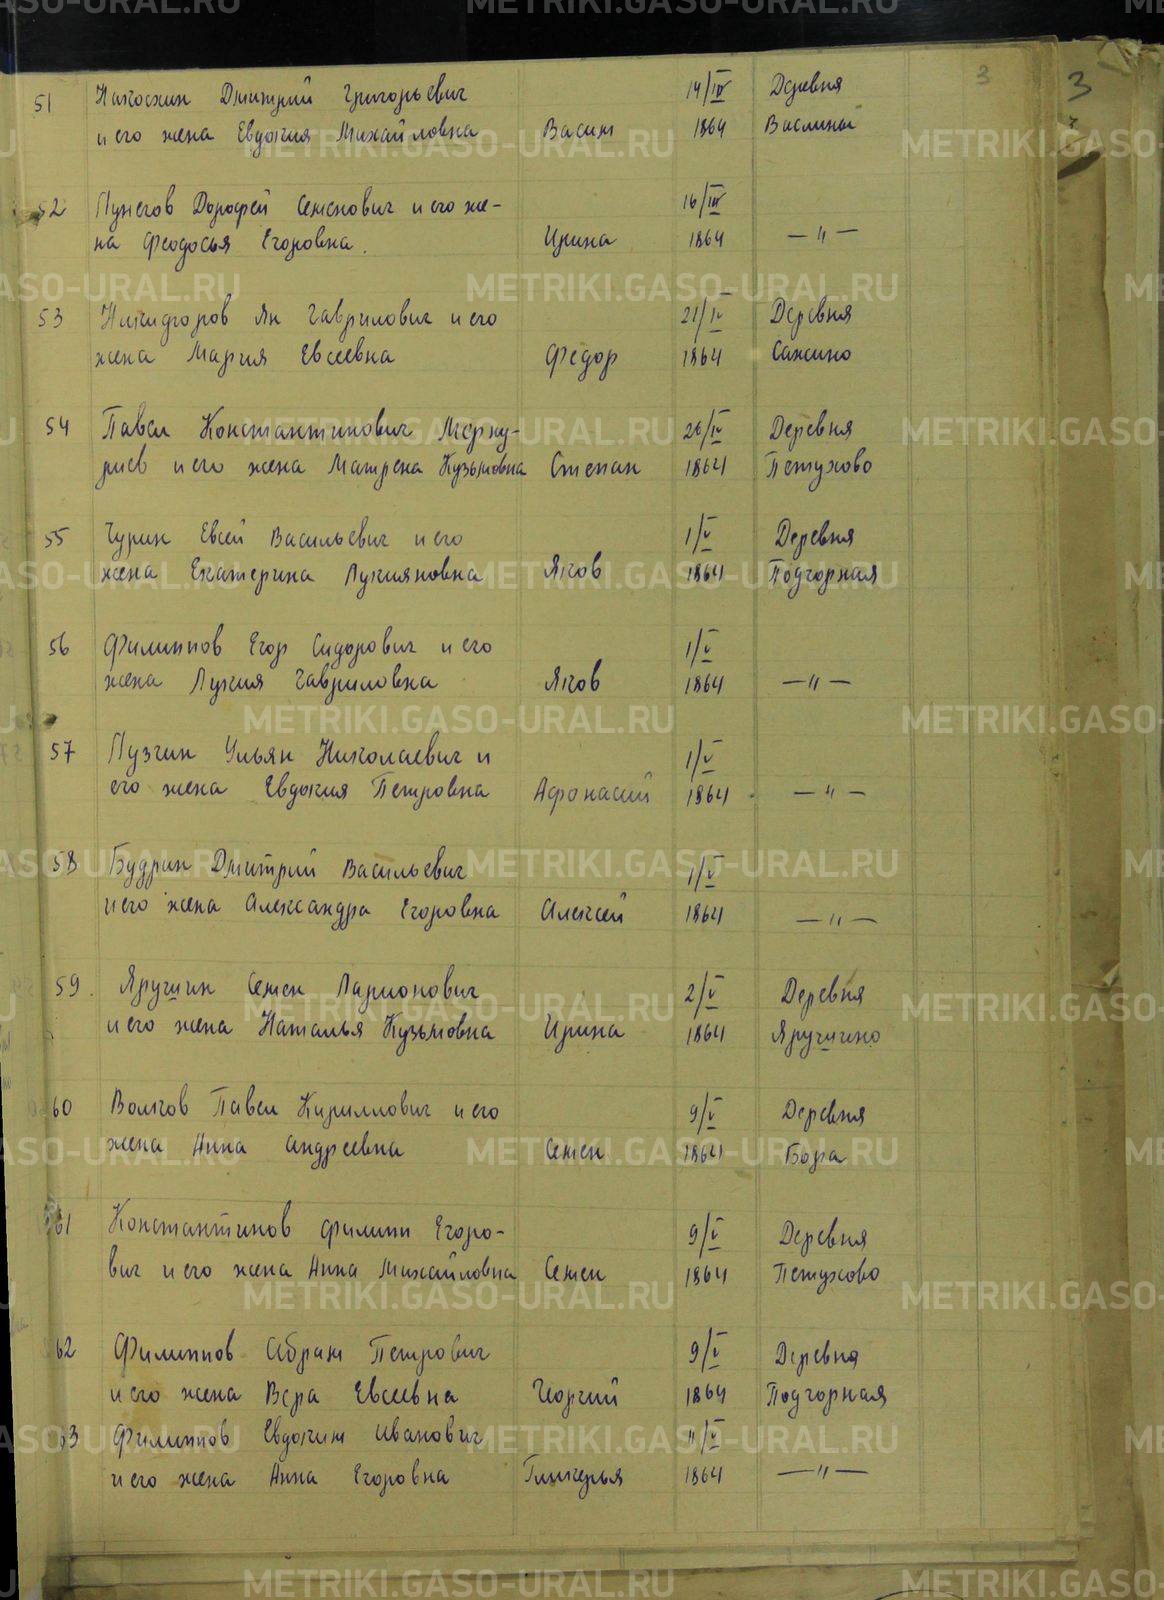 3
3
51 Накоскин Дмитрий Григорьевич 14/IV Деревня
и его жена Евдокия Михайловна Васил 1864 Васлины
52 Пунегов Дорофей Семенович и его же- 16/IV
на Феодосья Егоровна. Ирина 1864 —"—
53 Никифоров Ян Гаврилович и его 21/IV Деревня
жена Мария Евсеевна Федор 1864 Сажино
54 Павел Константинович Мерку- 26/IV Деревня
риев и его жена Матрена Кузьмовна Степан 1864 Петухово
55 Чурин Евсей Васильевич и его 1/V Деревня
жена Екатерина Лукияновна Яков 1864 Подгорная
56 Филиппов Егор Сидорович и его 1/V
жена Лукия Гавриловна Яков 1864 —"—
57 Пузгин Ульян Николаевич и 1/V
его жена Евдокия Петровна Афонасий 1864 —"—
58 Будрин Дмитрий Васильевич 1/V
и его жена Александра Егоровна Алексей 1864 —"—
59. Яручин Семен Ларионович 2/V Деревня
и его жена Наталья Кузьмовна Ирина 1864 Яручино
60 Волков Павел Кириллович и его 9/V Деревня
жена Анна Андреевна Семен 1864 Бора
61 Константинов Филипп Егоро- 9/V Деревня
вич и его жена Анна Михайловна Семен 1864 Петухово
62 Филиппов Абрам Петрович 9/V Деревня
и его жена Вера Евсеевна Георгий 1864 Подгорная
63 Филиппов Евдоким Иванович 11/V
и его жена Анна Егоровна Гликерья 1864 —"—
METRIKI.GASO-URAL.RU